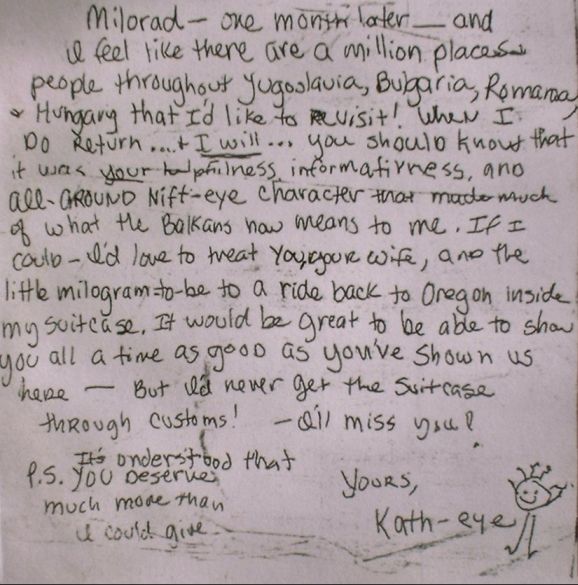 Milorad — one month later — and
I feel like there are a million places
people throughout Yugoslavia, Bulgaria, Romania,
& Hungary that I'd like to Revisit! When I
Do Return .... + I will ... you should know that
it was your helpfulness, informativness, and
all-aROUND Nift-eye character that made much
of what the Balkans now means to me. If I
could — I'd love to treat You, your wife, and the
little milogram-to-be to a ride back to Oregon inside
my suitcase. It would be great to be able to show
you all a time as good as you've shown us
here — But I'd never get the suitcase
through customs! — I'll miss you!
P.S. It's understood that
You Deserve
much more than
I could give
Yours,
Kath-eye